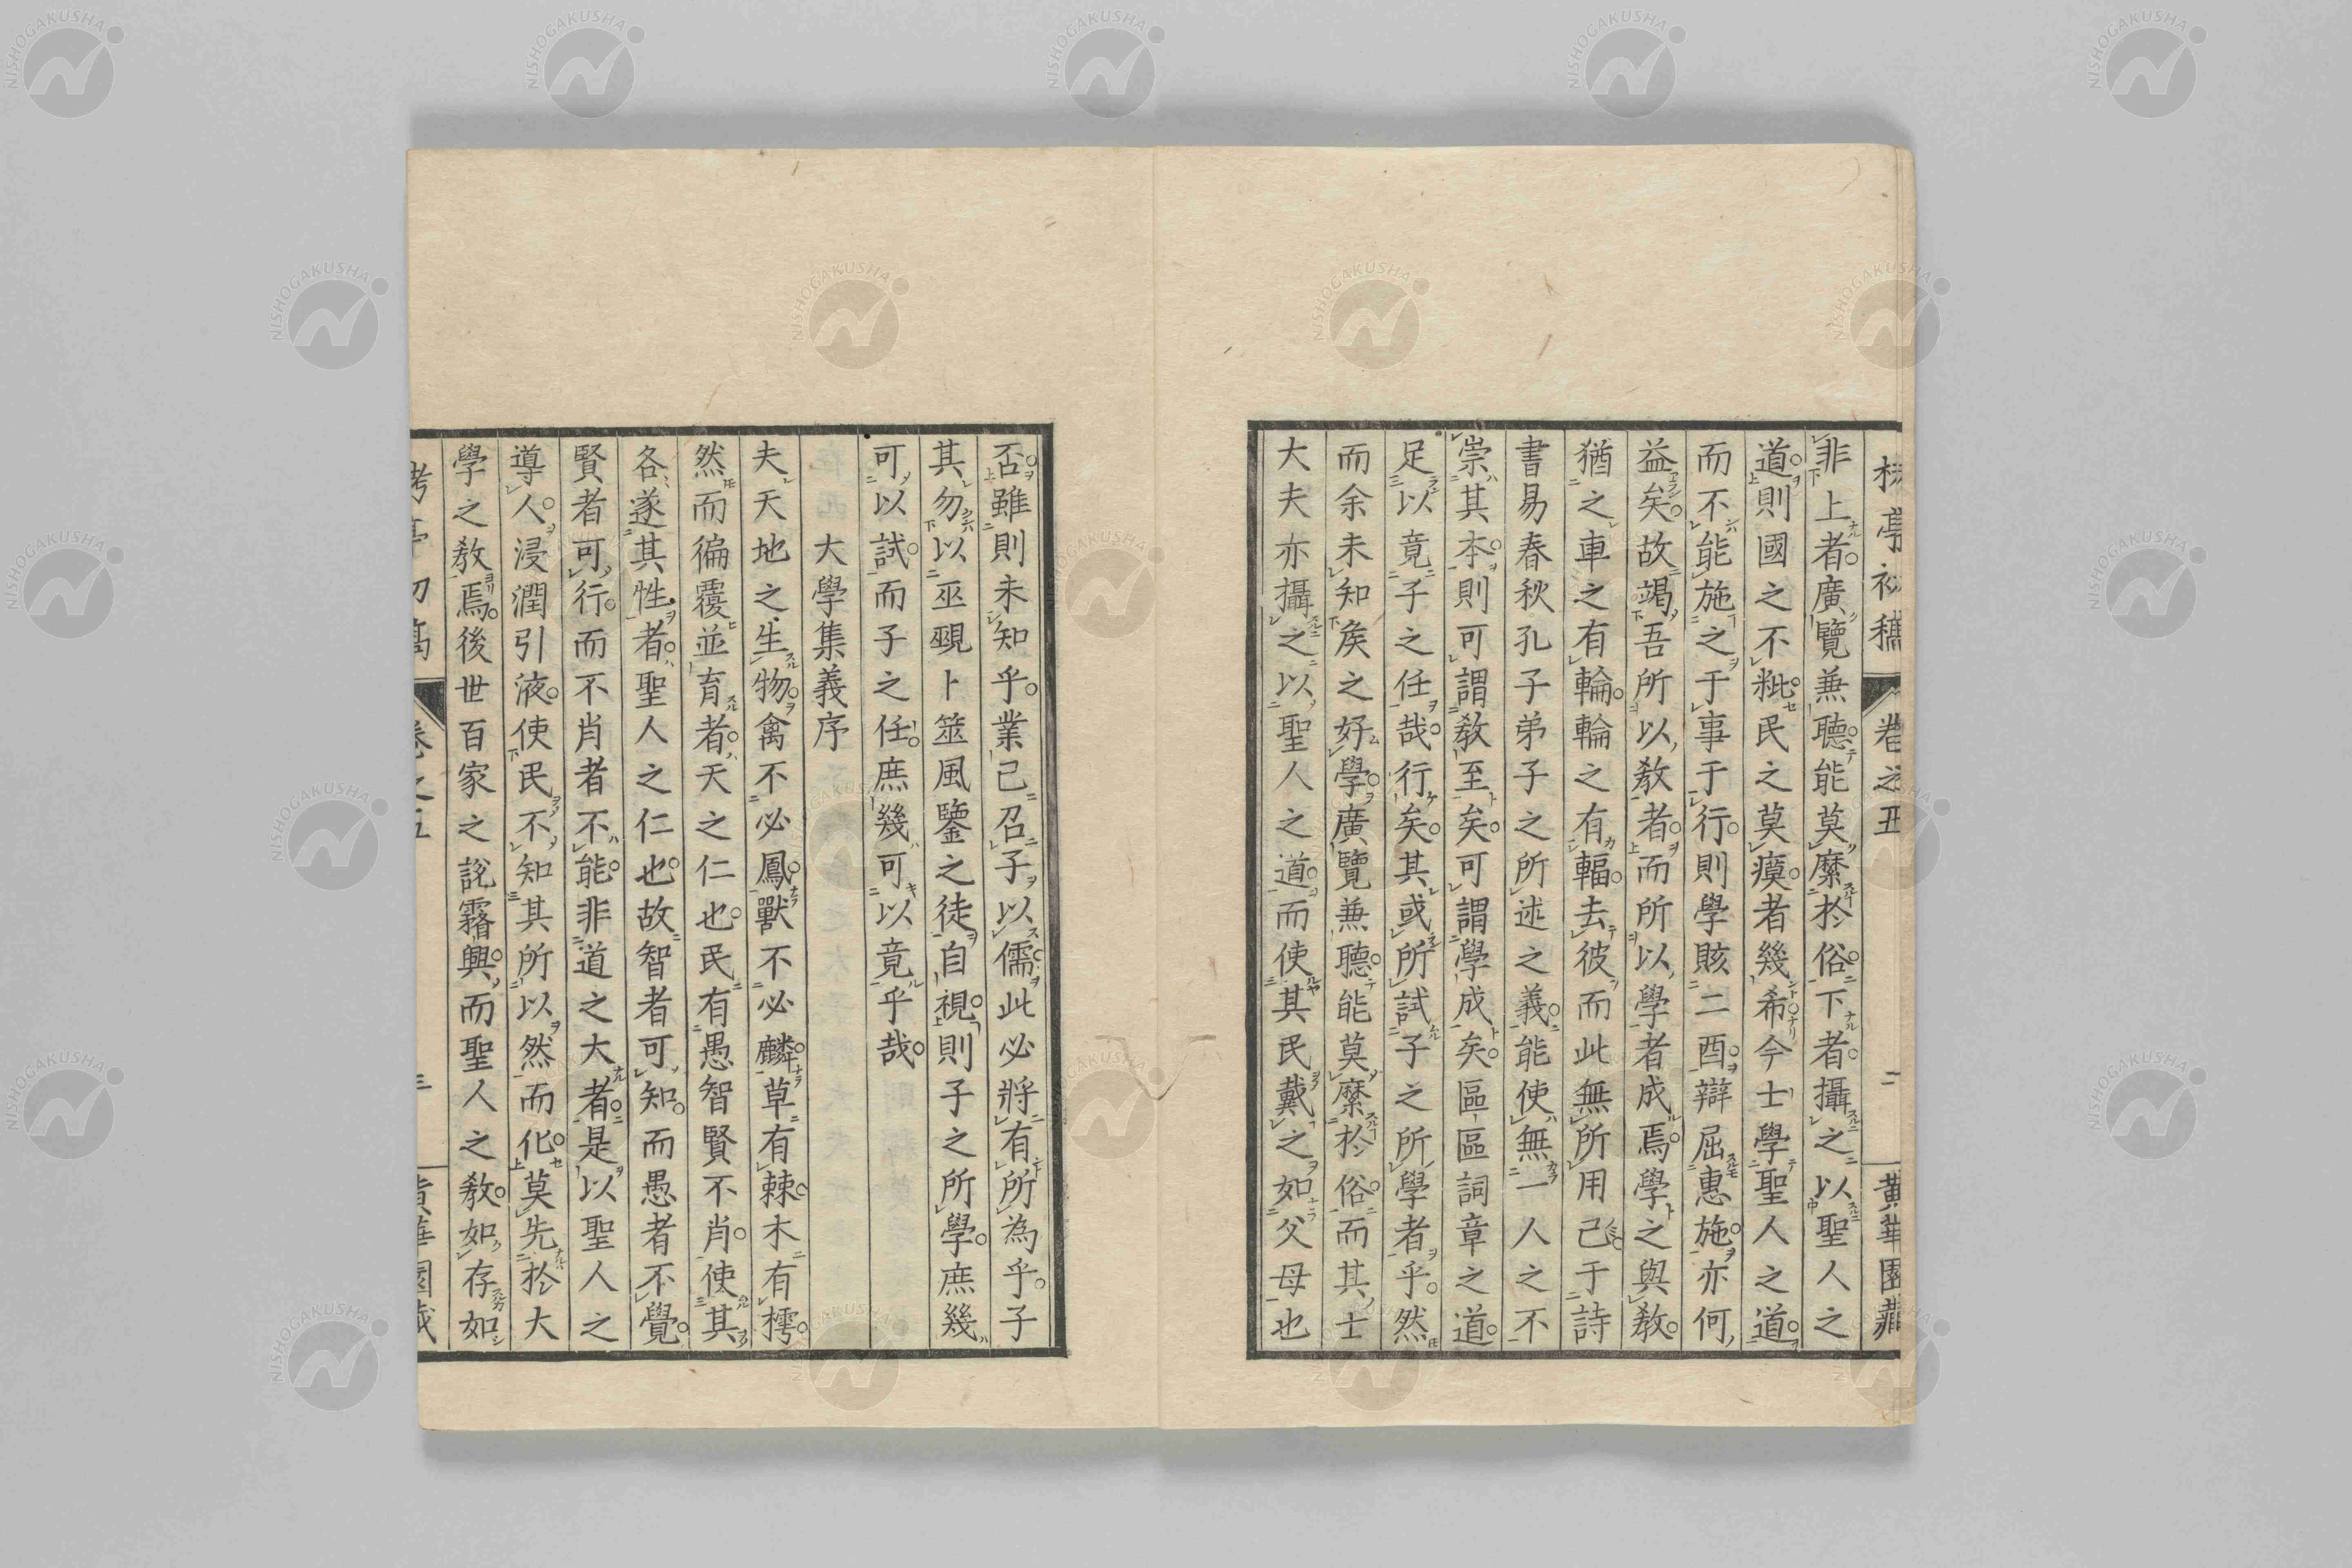 非上者廣覽兼聽能莫縻於俗下者攝之以聖人之
道則國之不粃民之莫瘼者幾希今士學聖人之道
而不能施之于事于行則學賅二酉辯屈惠施亦何
益矣故竭吾所以教者而所以學者成焉學之與教
猶之車之有輪輪之有輻去彼而此無所用己于詩
書易春秋孔子弟子之所述之義能使無一人之不
崇其本則可謂教至矣可謂學成矣區區詞章之道
足以竟子之任哉行矣其或所試子之所學者乎然
而余未知矦之好學廣覽兼聽能莫縻於俗而其士
大夫亦攝之以聖人之道而使其民戴之如父母也
卷之五
二
黄華園藏
否雖則未知乎業己召子以儒此必將有所為乎子
其勿以巫覡卜筮風鑒之徒自視則子之所學庶幾
可以試而子之任庶幾可以竟乎哉
大學集義序
夫天地之生物禽不必鳳獸不必麟草有棘木有樗
然而徧覆並育者天之仁也民有愚智賢不肖使其
各遂其性者聖人之仁也故智者可知而愚者不覺
賢者可行而不肖者不能非道之大者是以聖人之
導人浸潤引液使民不知其所以然而化莫先於大
學之教焉後世百家之說霧興而聖人之教如存如
卷之五
三